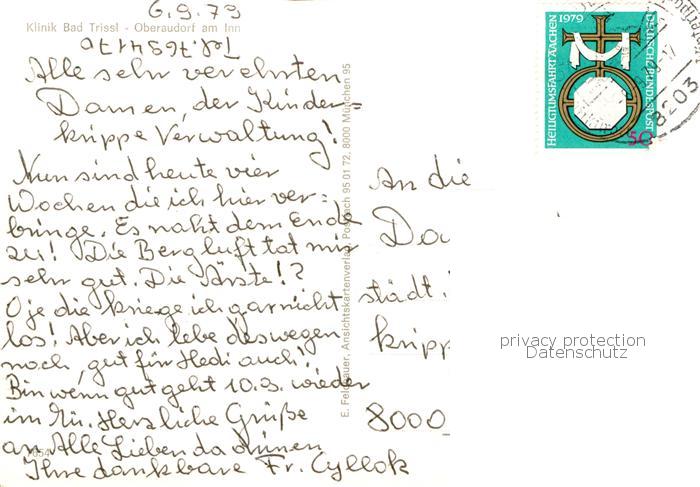 6.9.79
Klinik Bad Trissl - Oberaudorf am Inn
Alle sehr verehrten
Damen, der Kinder-
krippe Verwaltung!
Nun sind heute vier
Wochen die ich hier ver=
bringe. Es naht dem Ende
zu! Die Bergluft tat mir
sehr gut. Die Ärzte!?
Oje die kriege ich gar nicht
los! Aber ich lebe deswegen
noch, gut für Hedi auch!
Bin wenn gut geht 10.9. wieder
im Mü. Herzliche Grüße
an Alle Lieben da drinnen
Ihre dankbare Fr. Cyllok
7654
E. Feldbauer, Ansichtskartenverlag, Postfach 95 01 72, 8000 München 95
An die
Da
städt.
kripp
8000
HEILIGTUMSFAHRT AACHEN 1979
DEUTSCHE BUNDESPOST
50
8203
privacy protection
Datenschutz